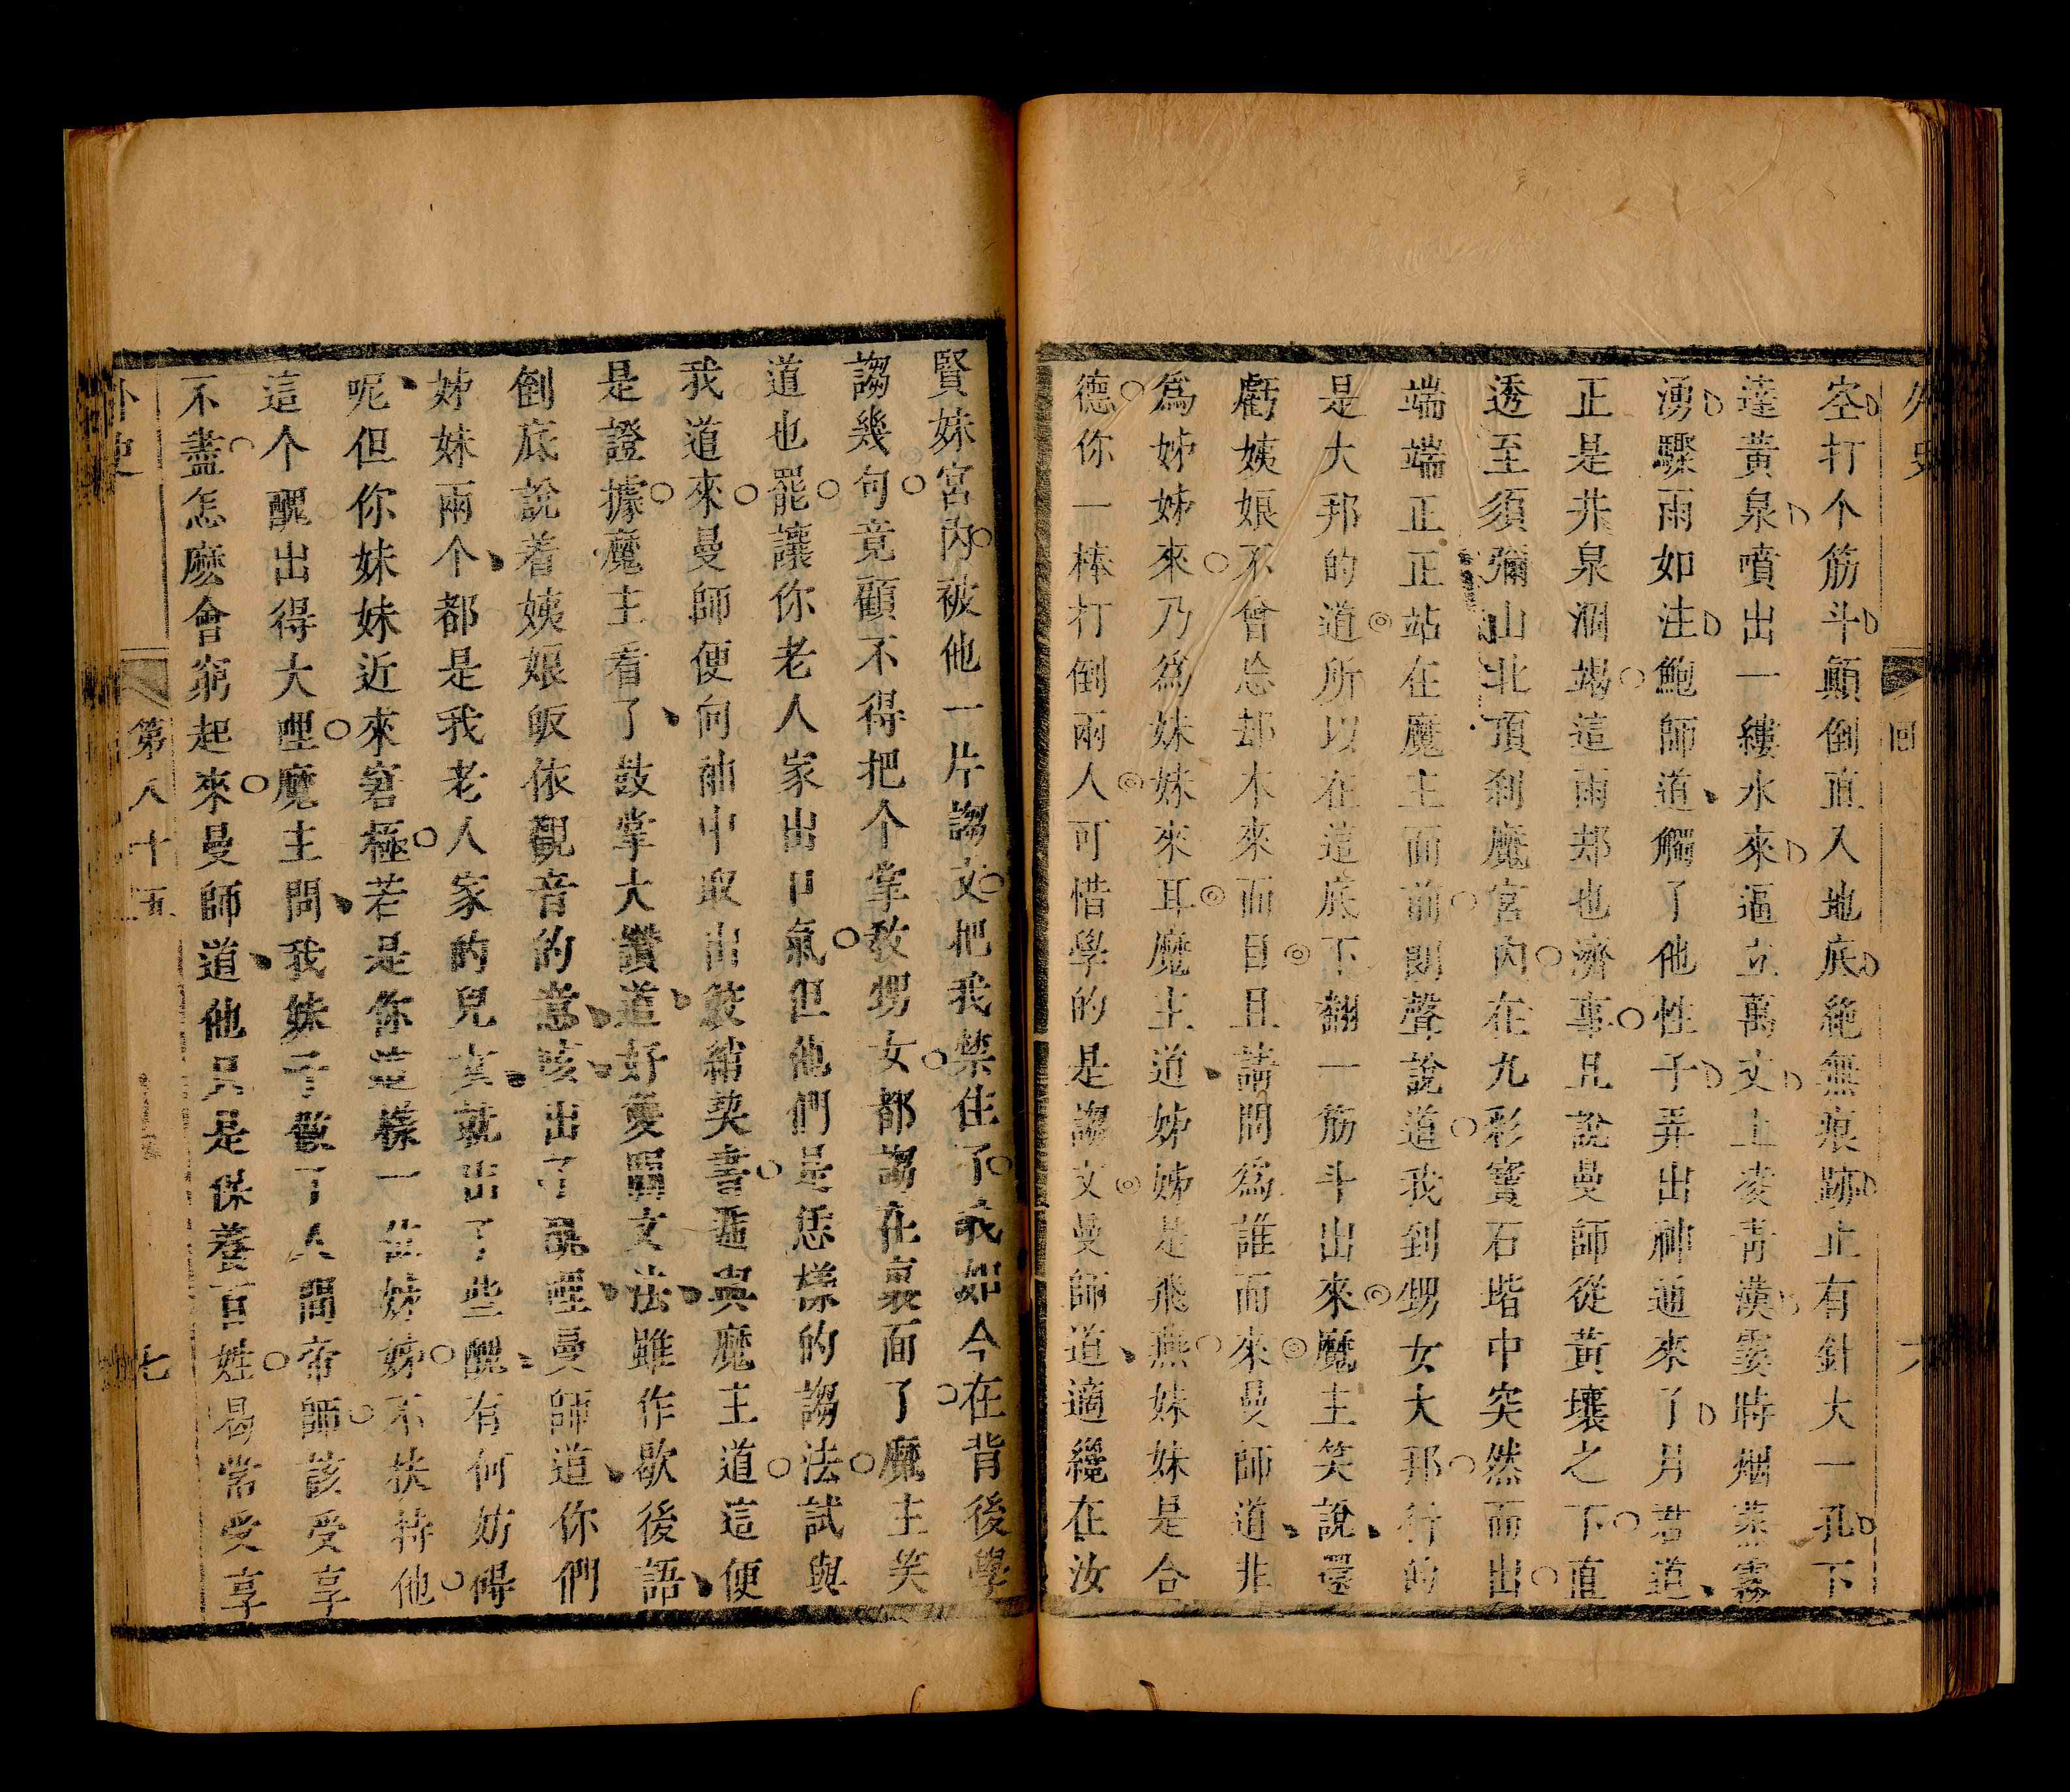 外史
回
六
空打个筋斗顚倒直入地底絶無痕跡止有針大一孔下
達黃泉噴出一縷水來逼立萬丈上凌靑漢霎時烟蒸霧
湧驟雨如注鮑師道觸了他性子弄出神通來了月君道
正是井泉涸竭這雨却也濟事且說曼師從黃壤之下直
透至須彌山北頂刹魔宮內在九彩寶石堦中突然而出
端端正正站在魔主面前朗聲說道我到甥女大邦行的
是大邦的道所以在這底下翻一筋斗出來魔主笑說還
虧姨娘不曾忘却本來面目且請問爲誰而來曼師道非
爲姊姊來乃爲妹妹來耳魔主道姊姊是飛燕妹妹是合
德你一棒打倒兩人可惜學的是謅文曼師道適纔在汝
賢妹宮內被他一片謅文把我禁住了我如今在背後學
謅幾句竟顧不得把个掌敎甥女都謅在裏面了魔主笑
道也罷讓你老人家出口氣但他們是恁樣的謅法試與
我道來曼師便向袖中取出筊綃契書遞與魔主道這便
是證據魔主看了鼓掌大讚道好憂羀文法雖作歇後語
倒底說着姨娘皈依觀音的意該出了醜哩曼師道你們
姊妹兩个都是我老人家的兒女就出了些醜有何妨碍
呢但你妹妹近來窘極若是你這樣一个姊姊不扶持他
這个醜出得大哩魔主問我妹子做了人間帝師該受享
不盡怎麽會窮起來曼師道他只是保養百姓易常受享
外史
第八十五
七